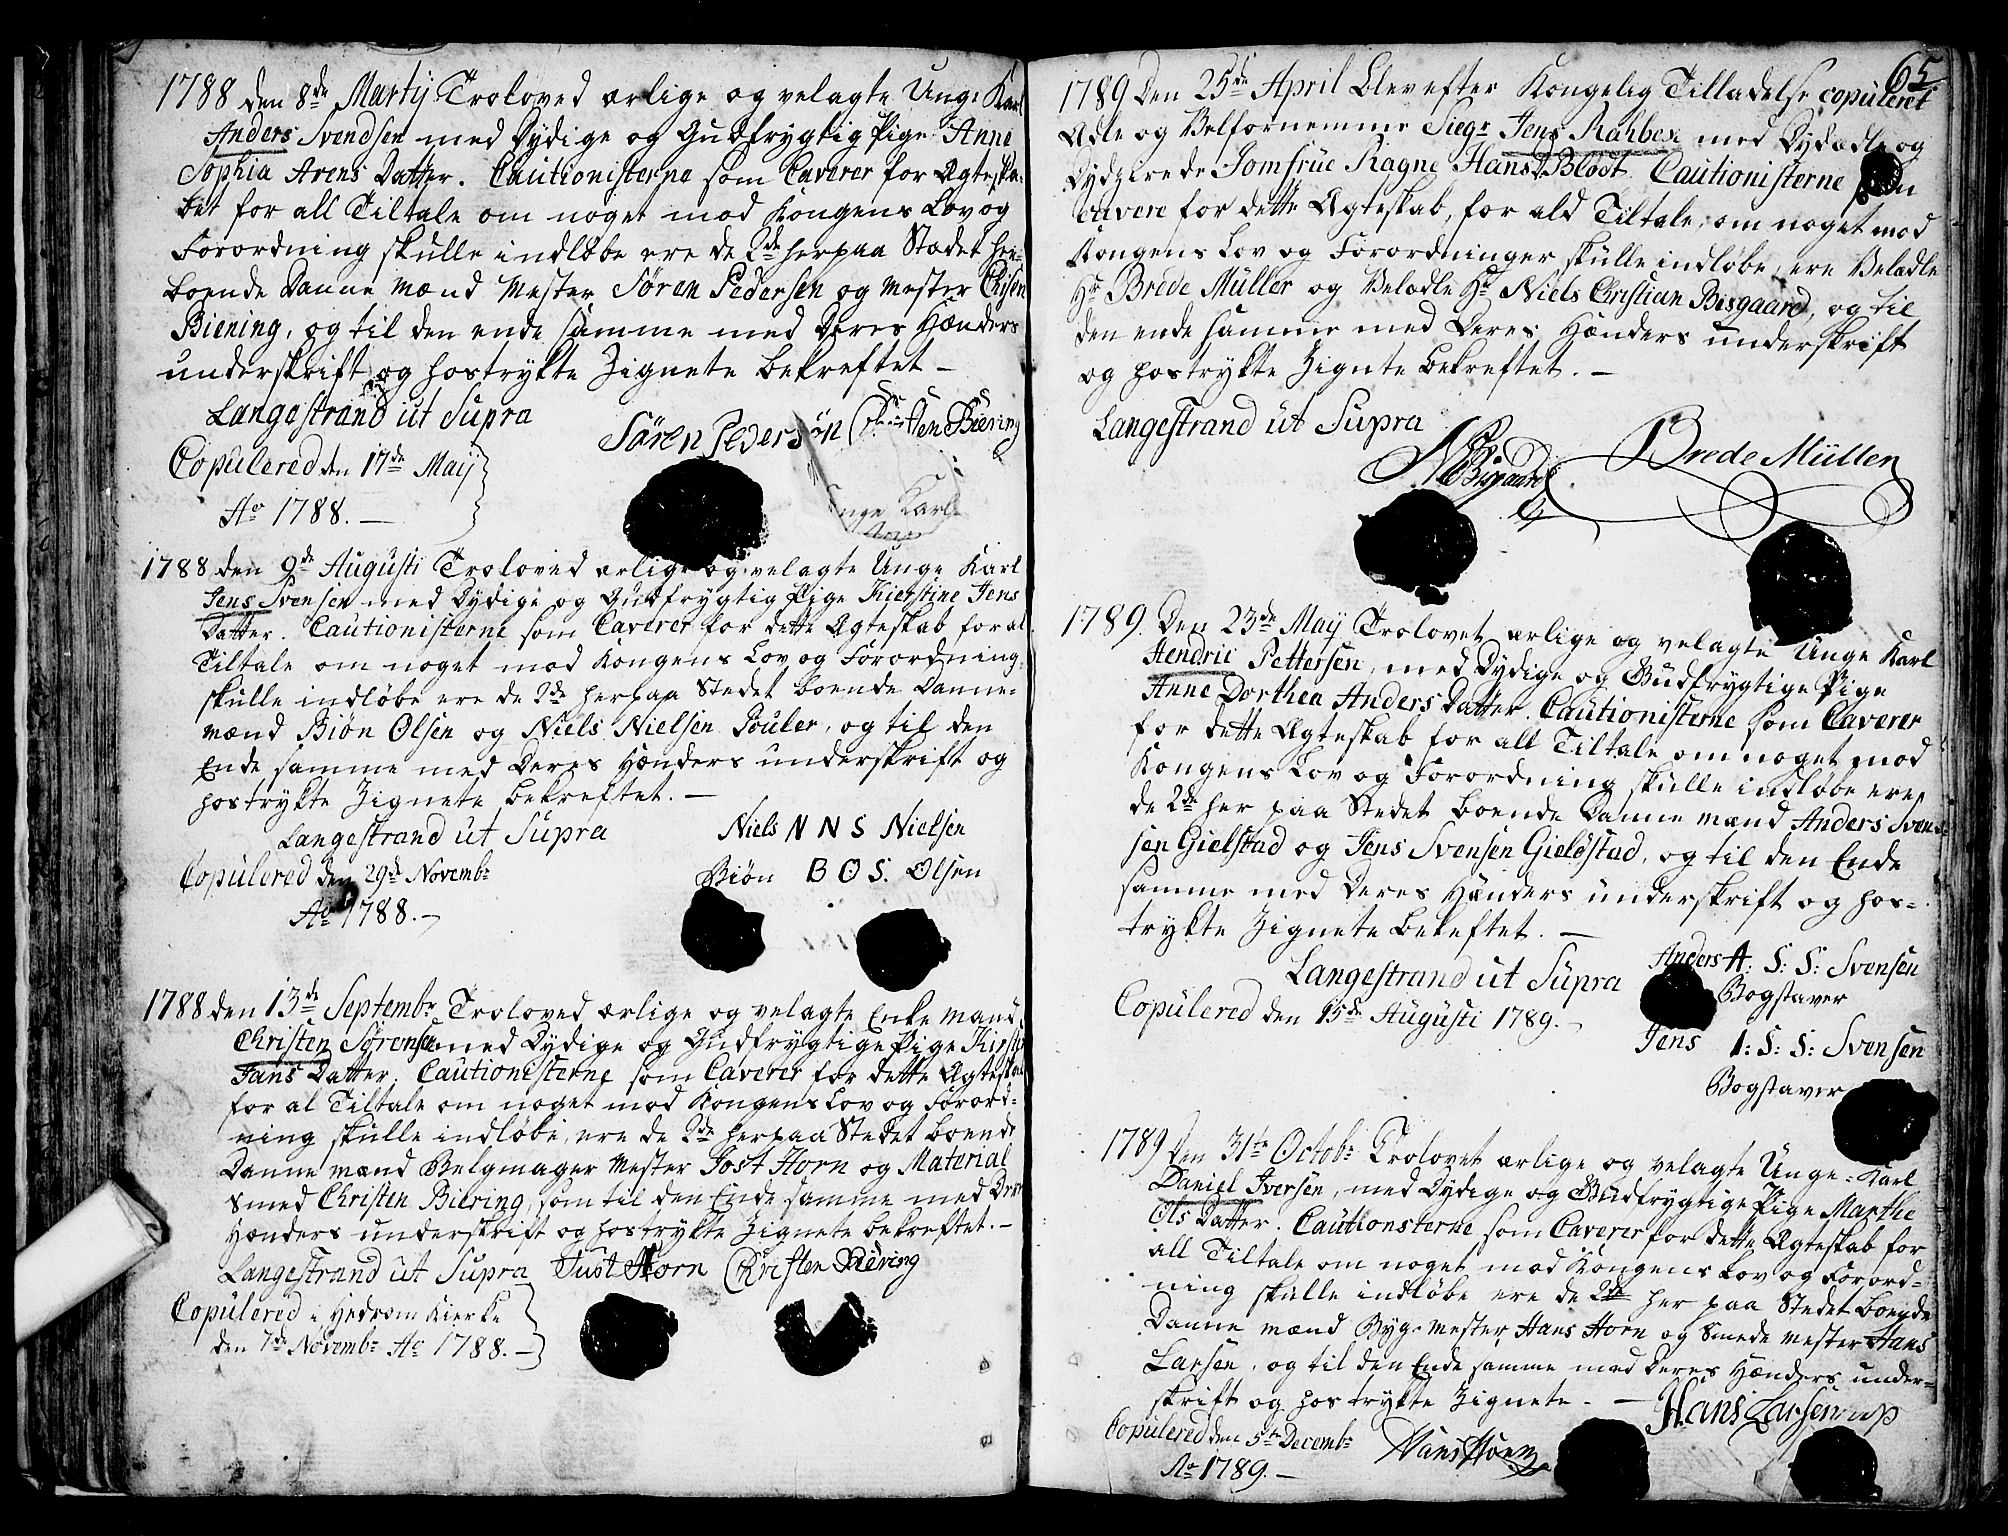 1788 den 8de Martij Troloved ærlige og velagte Unge Karl
Anders Svendsen med Dydige og Gudfrygtig Pige Anne
Sophia Arens Datter. Cautionisterne som Caverer for Ægteska-
bet for all Tiltale om noget mod Kongens Lov og
Forordning skulle indløbe ere de 2de herpaa Stædet hre-
boende Danne Mænd Mester Søren Pedersen og Mester
Biening, og til den ende samme med Deres Hænders
underskrift og hostrykte Zignete bekreftet –
Langestrand ut Supra
Sören Pedersön Christen Biering
Copulered den 17de Maij
Ao 1788. –
nge Karl
1788 den 9de Augusti Troloved ærlige og velagte Unge Karl
Jens Svensen med Dydige og Gudfrygtig Pige Kierstine Jens
Datter. Cautionisterne som Caverer for dette Ægteskab for al
Tiltale om noget mod Kongens Lov og Forordning
skulle indløbe ere de 2de herpaa Stedet boende Danne-
mænd Biøn Olsen og Niels Nielsen Pouler, og til den
Ende samme med Deres Hænders underskrift og
hostrykte Zignete bekreftet. –
Langestrand ut Supra
Niels N N S Nielsen
Biøn B O S. Olsen
Copulered den 29de Novembr
Ao 1788. –
1788 den 13de Septembr Troloved ærlige og velagte Enke mand
Christen Sørensen med Dydige og Gudfrygtige Pige
Jans Datter. Cautionisterne som Caverer for dette Ægteskab
for al Tiltale om noget mod Kongens Lov og Forord-
ning skulle indløbe, ere de 2de herpaa Stedet boende
Danne mænd Belgmager Mester Jost Horn og Material
Smed Christen Biering, som til den Ende samme med Deres
Hænders underskrift og hostrykte Zignete bekreftet. –
Langestrand ut Supra Just Horn Christen Biering
Copulered i Hedrom Kierke
den 7de Novembr Ao 1788. –
65
1789 Den 25de April blev efter Kongelig Tilladelse copuleret
Ædle og Velfornemme Siegr Jens Rahbek med Dydædle og
Dydzirede Jomfrue Ragne Hans D. Blodt. Cautionisterne
Cavere for dette Ægteskab, for ald Tiltale, om noget mod
Kongens Lov og Forordninger skulle indløbe, ere Velædle
Hr Brede Müller og Velædle Hr Niels Christian Bisgaard, og til
den ende samme med Deres Hænders underskrift
og hostrykte Zignte bekreftet. –
Langestrand ut Supra
NC Bisgaard Brede Müller
1789. Den 23de Maij Trolovet ærlige og velagte Unge Karl
Hendric Pettersen, med Dydige og Gudfrygtige Pige
Anne Dorthea Anders Datter. Cautionisterne som Caverer
for dette Ægteskab for all Tiltale om noget mod
Kongens Lov og Forordning skulle indløbe ere
de 2de her paa Stedet boende Danne mænd Anders Sven-
sen Gielstad og Jens Svensen Gieldstad, og til den Ende
samme med Deres Hænders underskrift og hos-
trykte Zignete bekeftet. –
Langestrand ut Supra
Anders A: S: S: Svensen
Bogstaver
Copulered den 15de Augusti 1789. –
Jens I: S: S: Svensen
Bogstaver
1789 Den 31te Octobr Trolovet ærlige og velagte Unge-Karl
Daniel Iversen, med Dydige og Gudfrygtige Pige Marthe
Ols Datter. Cautionsterne som Caverer for dette Ægteskab for
all Tiltale om noget mod Kongens Lov og Forord-
ning skulle indløbe ere de 2de her paa Stedet boende
Danne mænd Byg-Mester Hans Horn og Smede Mester Hans
Larsen, og til den Ende samme med Deres Hænders under-
skrift og hostrykte Zignete. –
Hans Larsen
Copulered den 5te Decembr
Hans Horn
Ao 1789. –